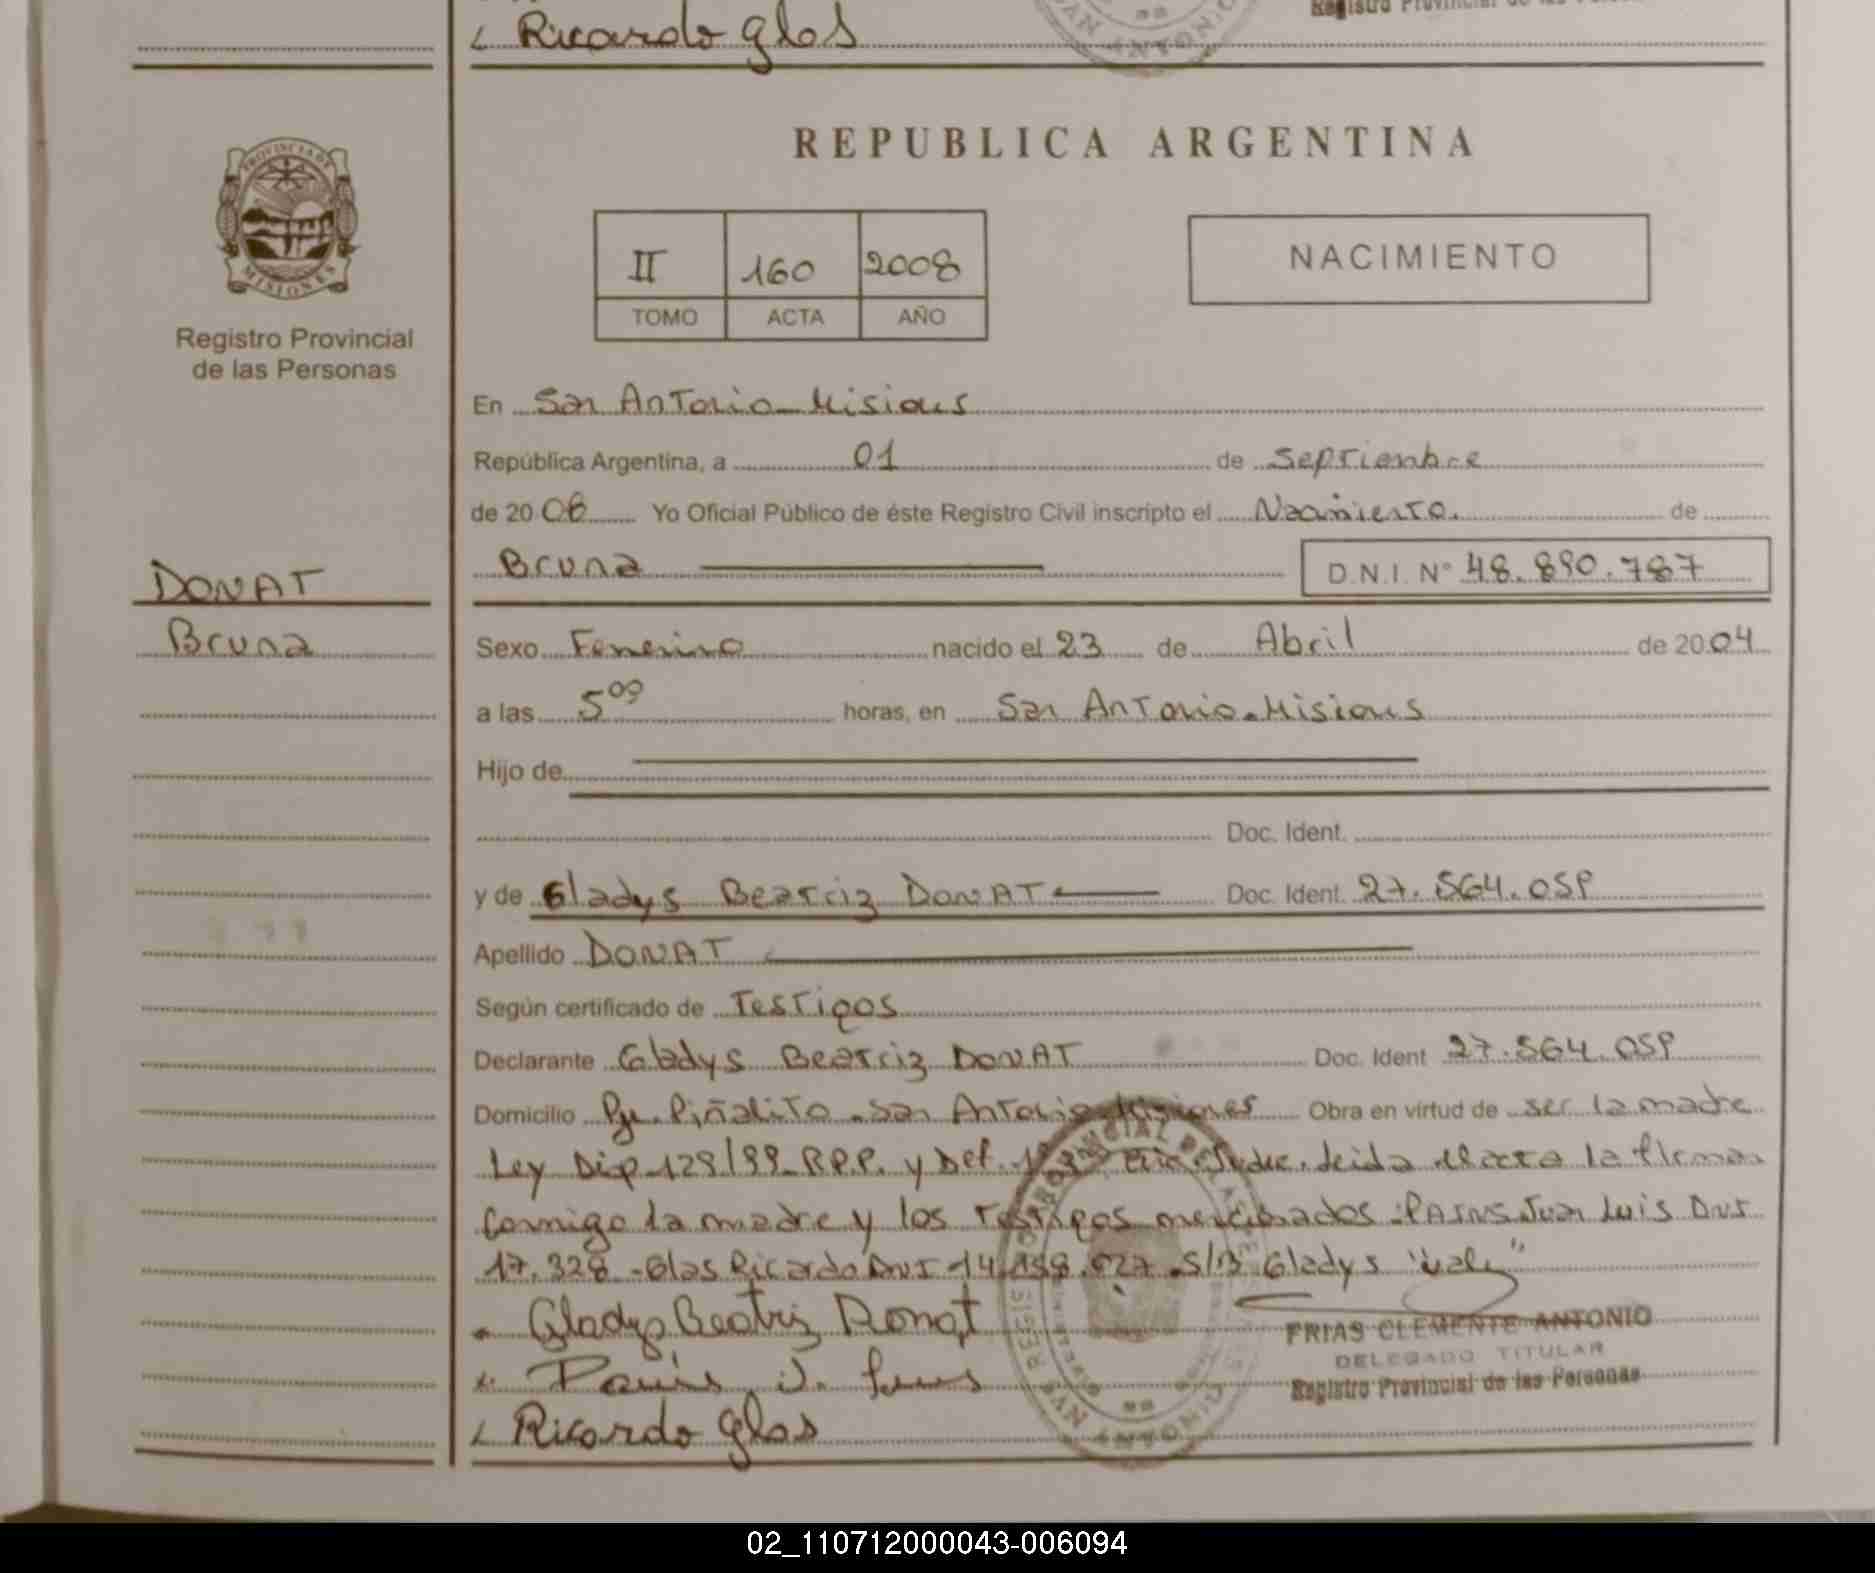 Ricardo glos
SAN ANTONIO
Registro Provincial de las Personas
PROVINCIA DE
MISIONES
Registro Provincial
de las Personas
REPUBLICA ARGENTINA
II 160 2008
TOMO ACTA AÑO
NACIMIENTO
En San Antonio - Misiones
República Argentina, a 01 de Septiembre
de 20 08 Yo Oficial Público de éste Registro Civil inscripto el Nacimiento. de
Bruna D.N.I. N° 48.890.787
DONAT
Bruna
Sexo Femenino nacido el 23 de Abril de 2004
a las 5⁰⁰ horas, en San Antonio - Misiones
Hijo de
Doc. Ident.
y de Gladys Beatriz DONAT Doc. Ident. 27.564.059
Apellido DONAT
Según certificado de Testigos
Declarante Gladys Beatriz DONAT Doc. Ident 27.564.059
Domicilio Pje. Piñalito - San Antonio Misiones Obra en virtud de ser la madre
Ley Disp. 129/99 - R.P.P. y leida el acta la firman
conmigo la madre y los testigos mencionados: Juan Luis DNI
17.328 - Glos Ricardo DNI 14.198.027 S/B Gladys "vale"
Gladys Beatriz Donat
Ricardo glos
REGISTRO PROVINCIAL DE LAS PERSONAS
SAN ANTONIO
FRIAS CLEMENTE ANTONIO
DELEGADO TITULAR
Registro Provincial de las Personas
02_110712000043-006094